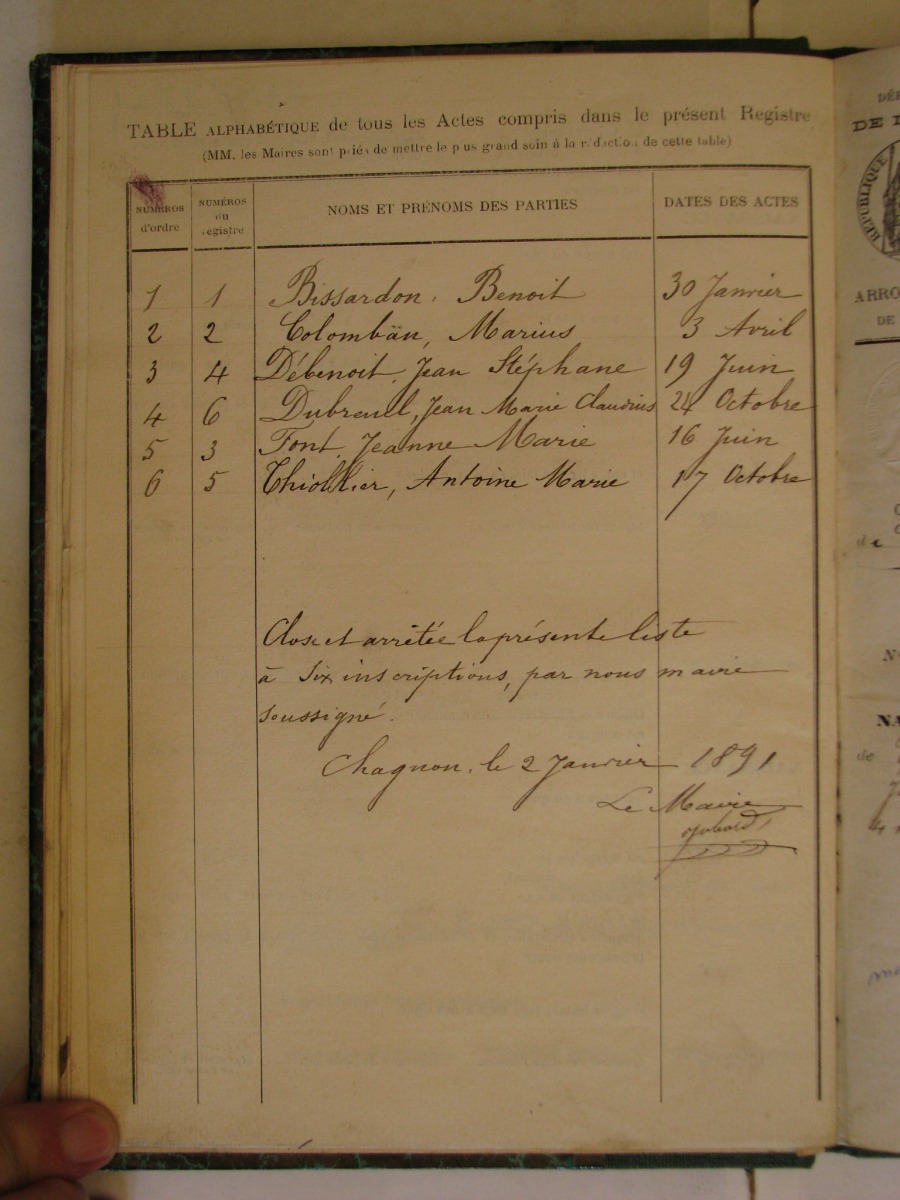 TABLE ALPHABÉTIQUE de tous les Actes compris dans le présent Registre
(MM. les Maires sont priés de mettre le plus grand soin à la rédaction de cette table)
NUMÉROS d'ordre NUMÉROS du registre NOMS ET PRÉNOMS DES PARTIES DATES DES ACTES
1 1 Bissardon, Benoit 30 Janvier
2 2 Colombän, Marius 3 Avril
3 4 Débenoit, Jean Stéphane 19 Juin
4 6 Dubreuil, Jean Marie Claudius 24 Octobre
5 3 Font, Jeanne Marie 16 Juin
6 5 Thiollier, Antoine Marie 17 Octobre
Close et arrêtée la présente liste
à Six inscriptions, par nous maire
soussigné.
Chagnon, le 2 Janvier 1891
Le Maire
RÉPUBLIQUE
ARRO
DE